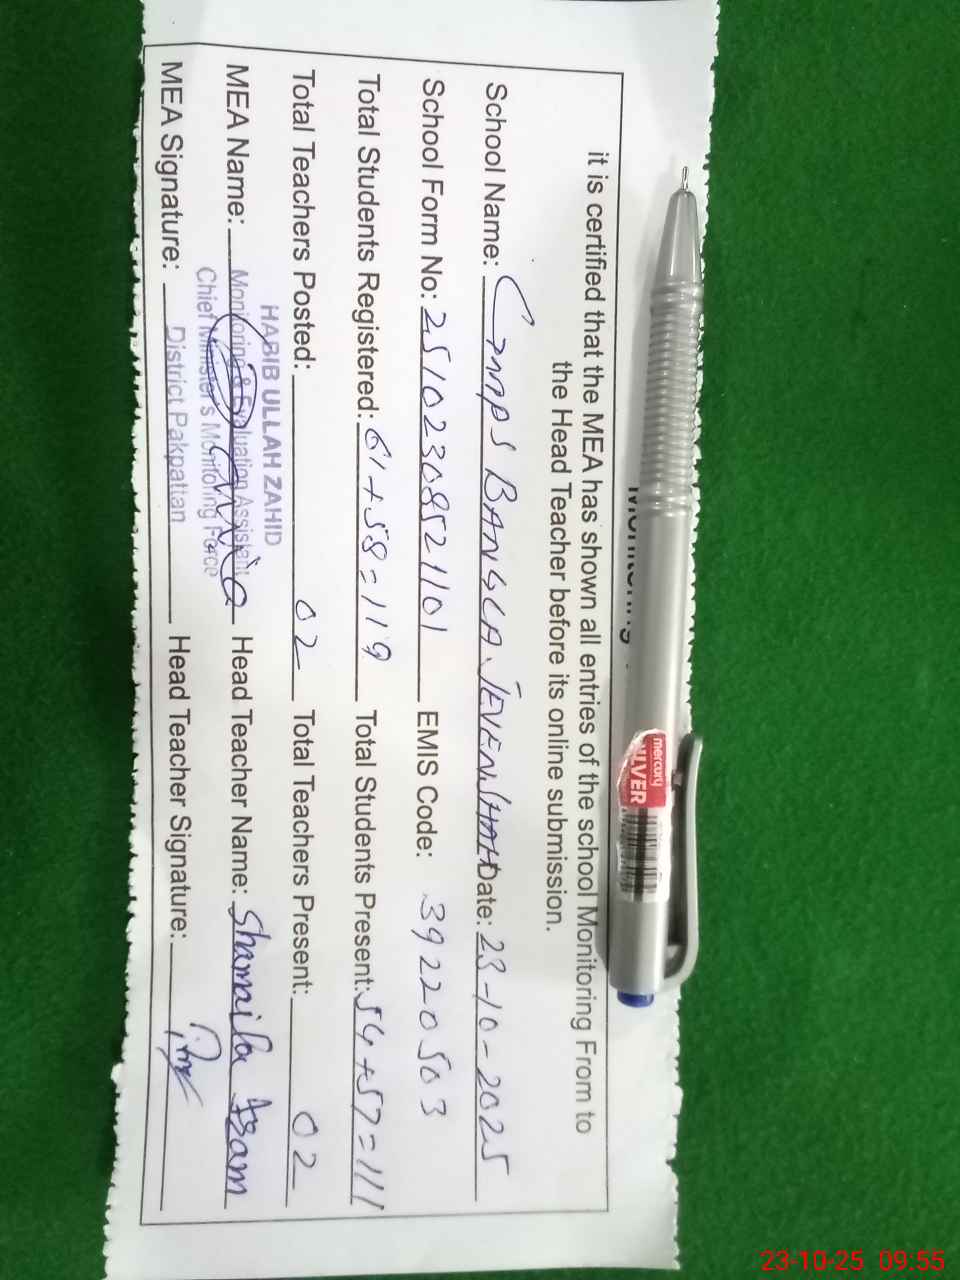 Monitoring
it is certified that the MEA has shown all entries of the school Monitoring From to
the Head Teacher before its online submission.
School Name: GMPS BANGLA JEVEN SHAH Date: 23-10-2025
School Form No: 25102308521101 EMIS Code: 39220503
Total Students Registered: 61+58=119 Total Students Present: 54+57=111
Total Teachers Posted: 02 Total Teachers Present: 02
MEA Name: Head Teacher Name: Shamaila Azam
MEA Signature: Head Teacher Signature:
HABIB ULLAH ZAHID
Monitoring & Evaluation Assistant
Chief Minister's Monitoring Force
District Pakpattan
mercury
SILVER
23-10-25 09:55